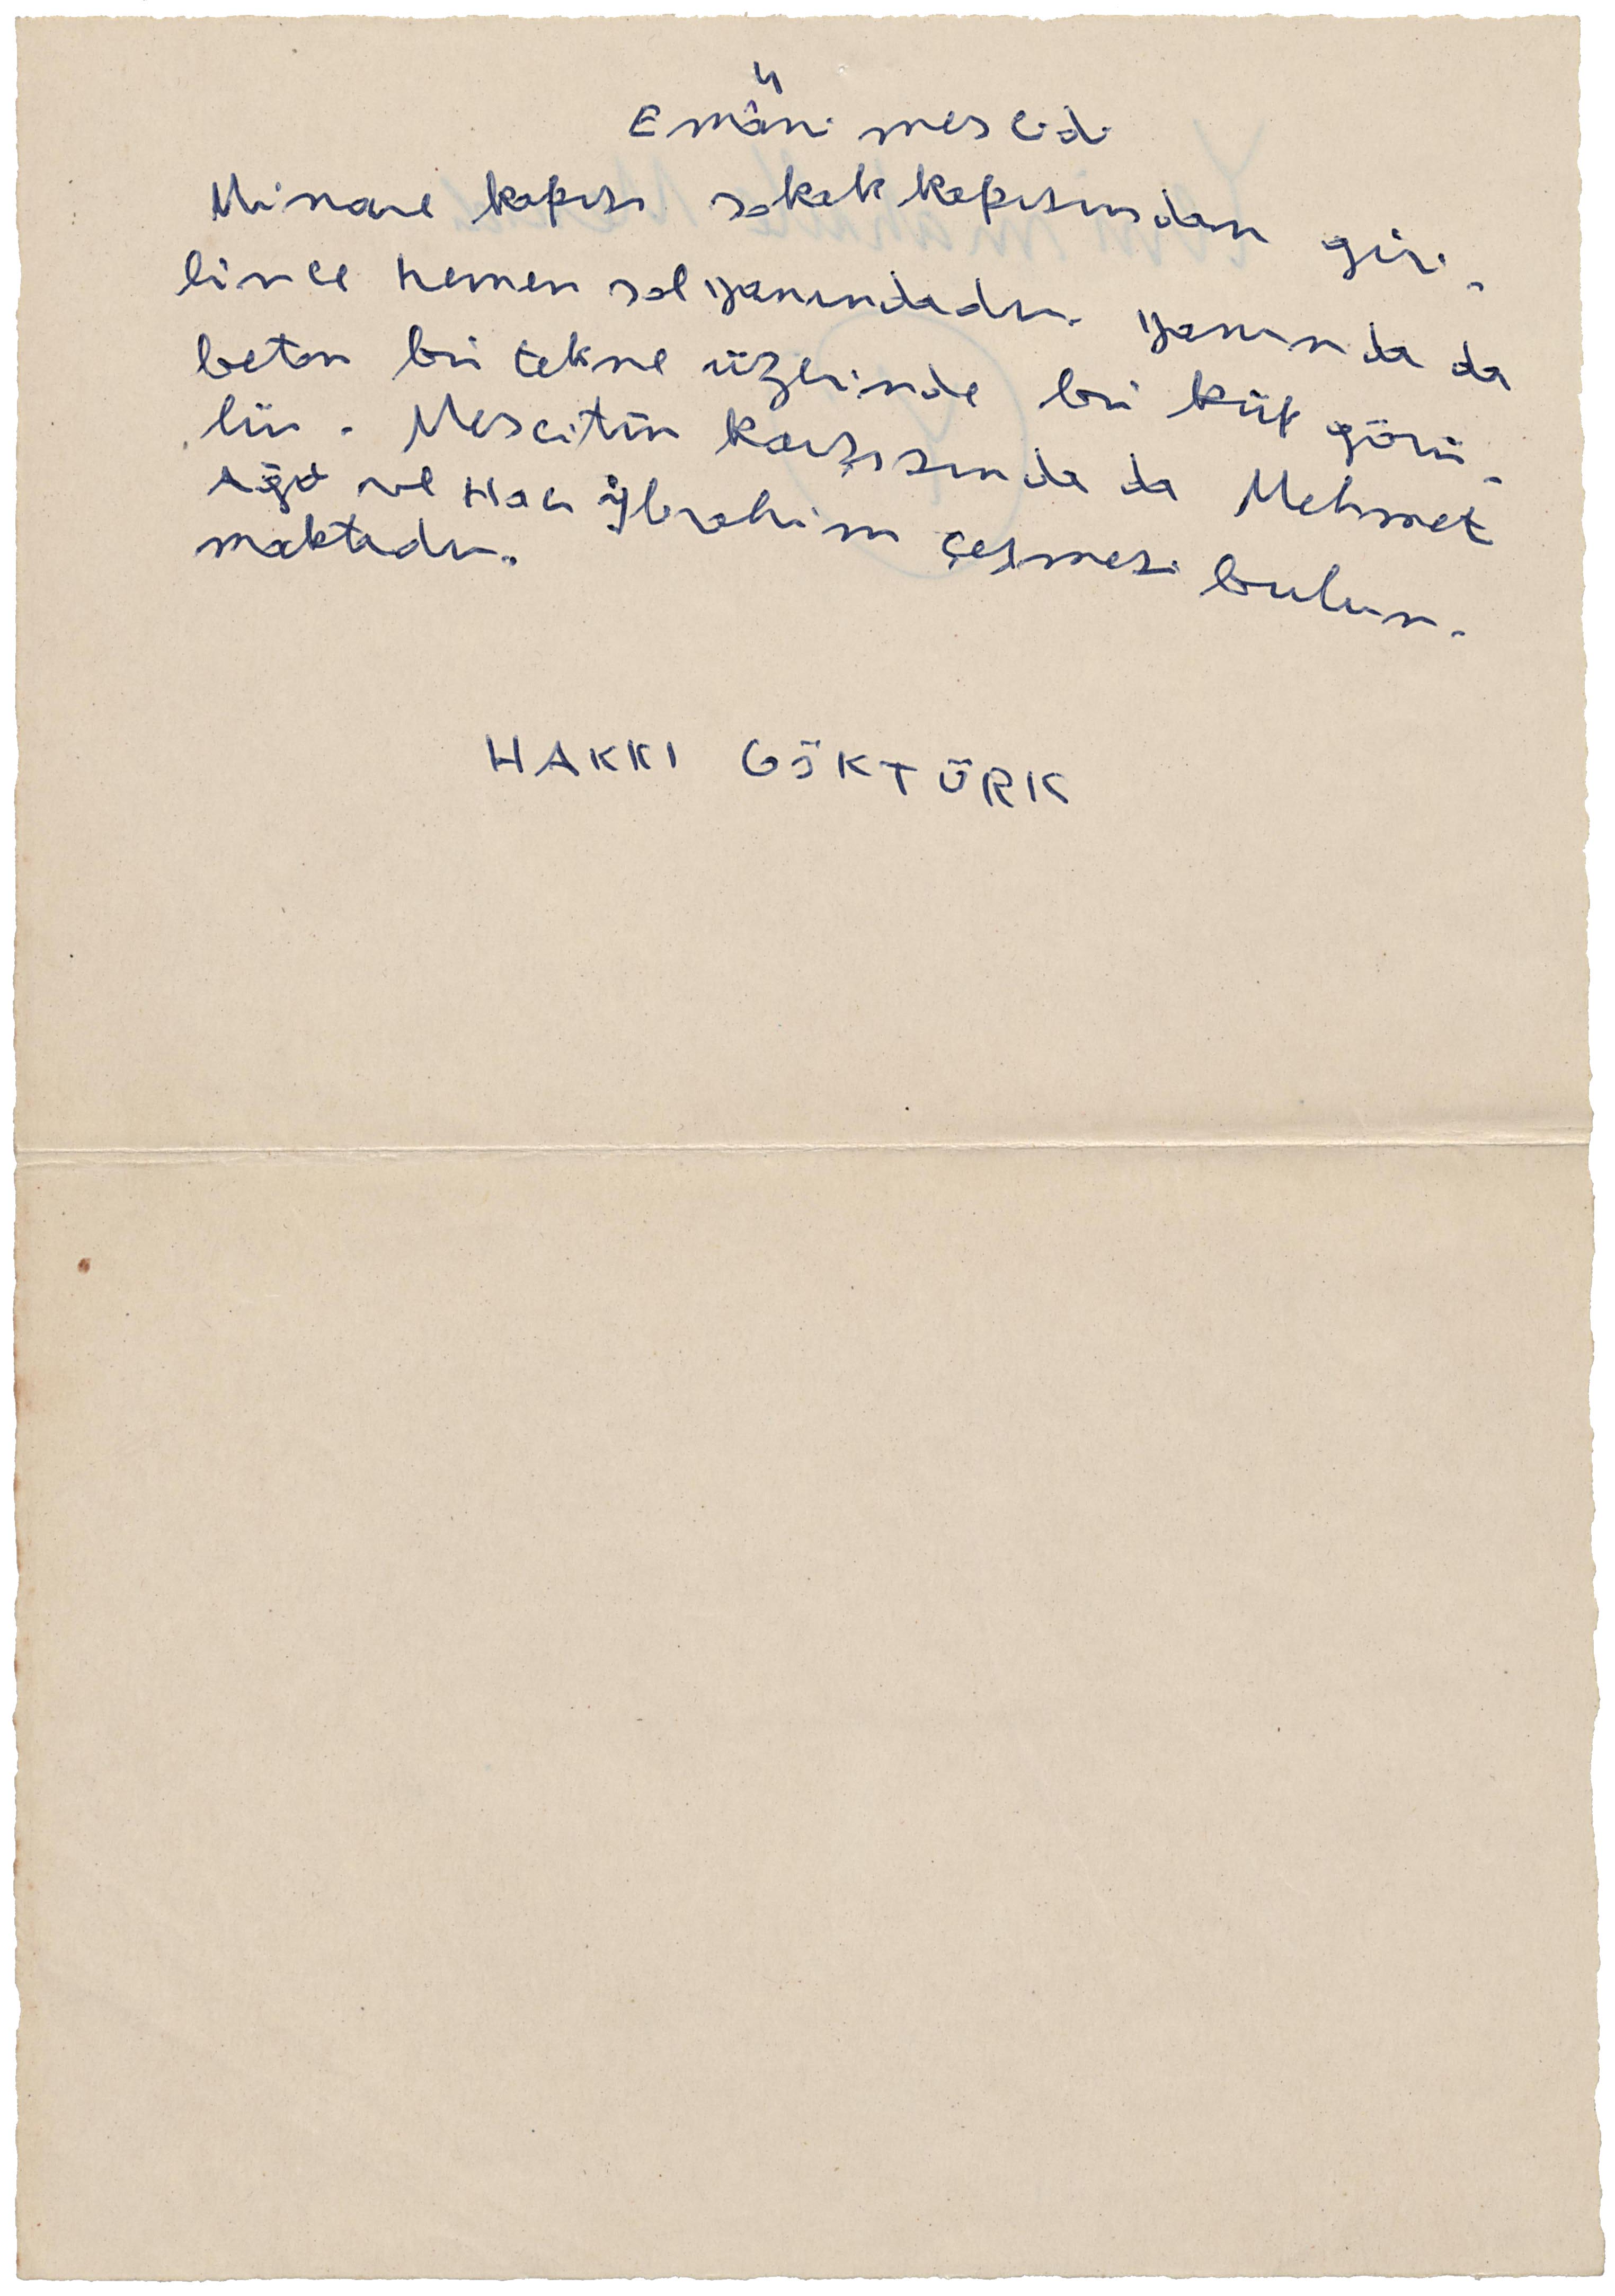 4
Emâni mescidi
Minare kapısı sokak kapısından giri-
lince hemen sol yanındadır. Yanında da
beton bir tekne üzerinde bir küp görü-
lür. Mescitin karşısında da Mehmet
Ağa ve Hacı İbrahim çeşmesi bulun-
maktadır.
HAKKI GÖKTÜRK